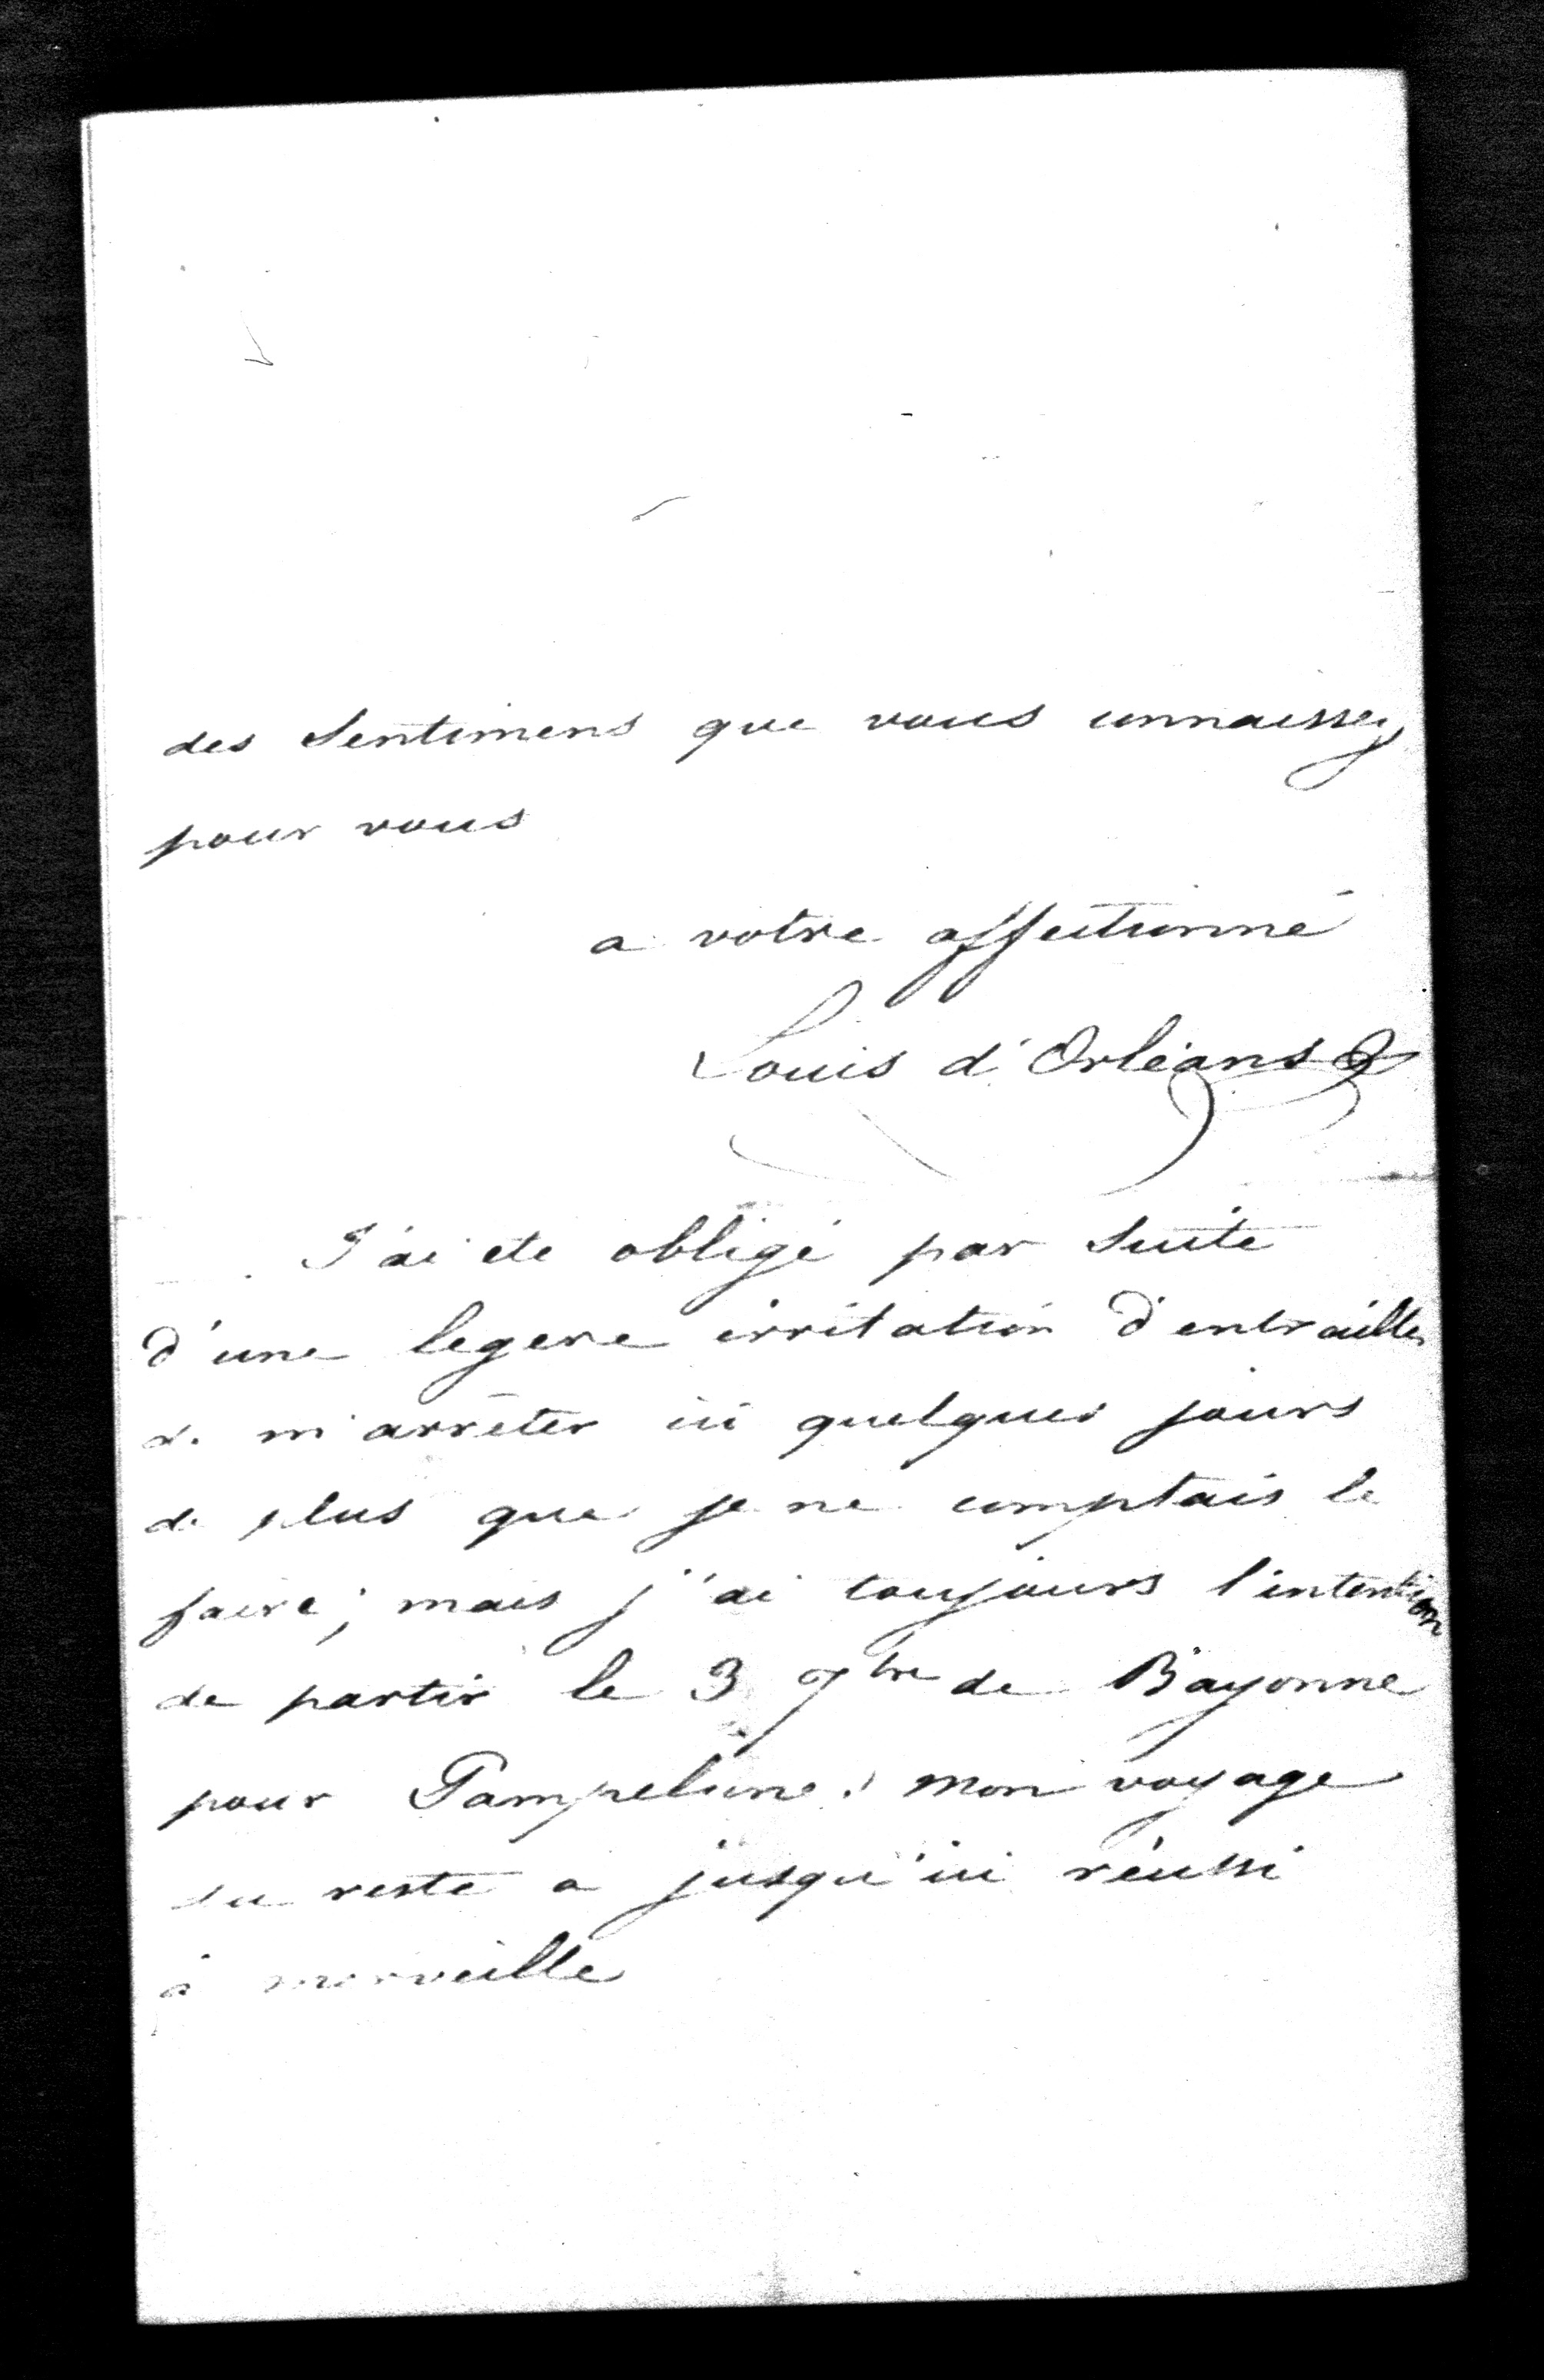 des sentimens que vous connaissez
pour vous
a votre affectionné
Louis d'Orléans
J'ai ete obligé par suite
d'une legere irritation d'entrailles
de m'arrêter ici quelques jours
de plus que je ne comptais le
faire; mais j'ai toujours l'intention
de partir le 3 7bre de Bayonne
pour Pampelune. mon voyage
du reste a jusqu'ici réussi
à merveille